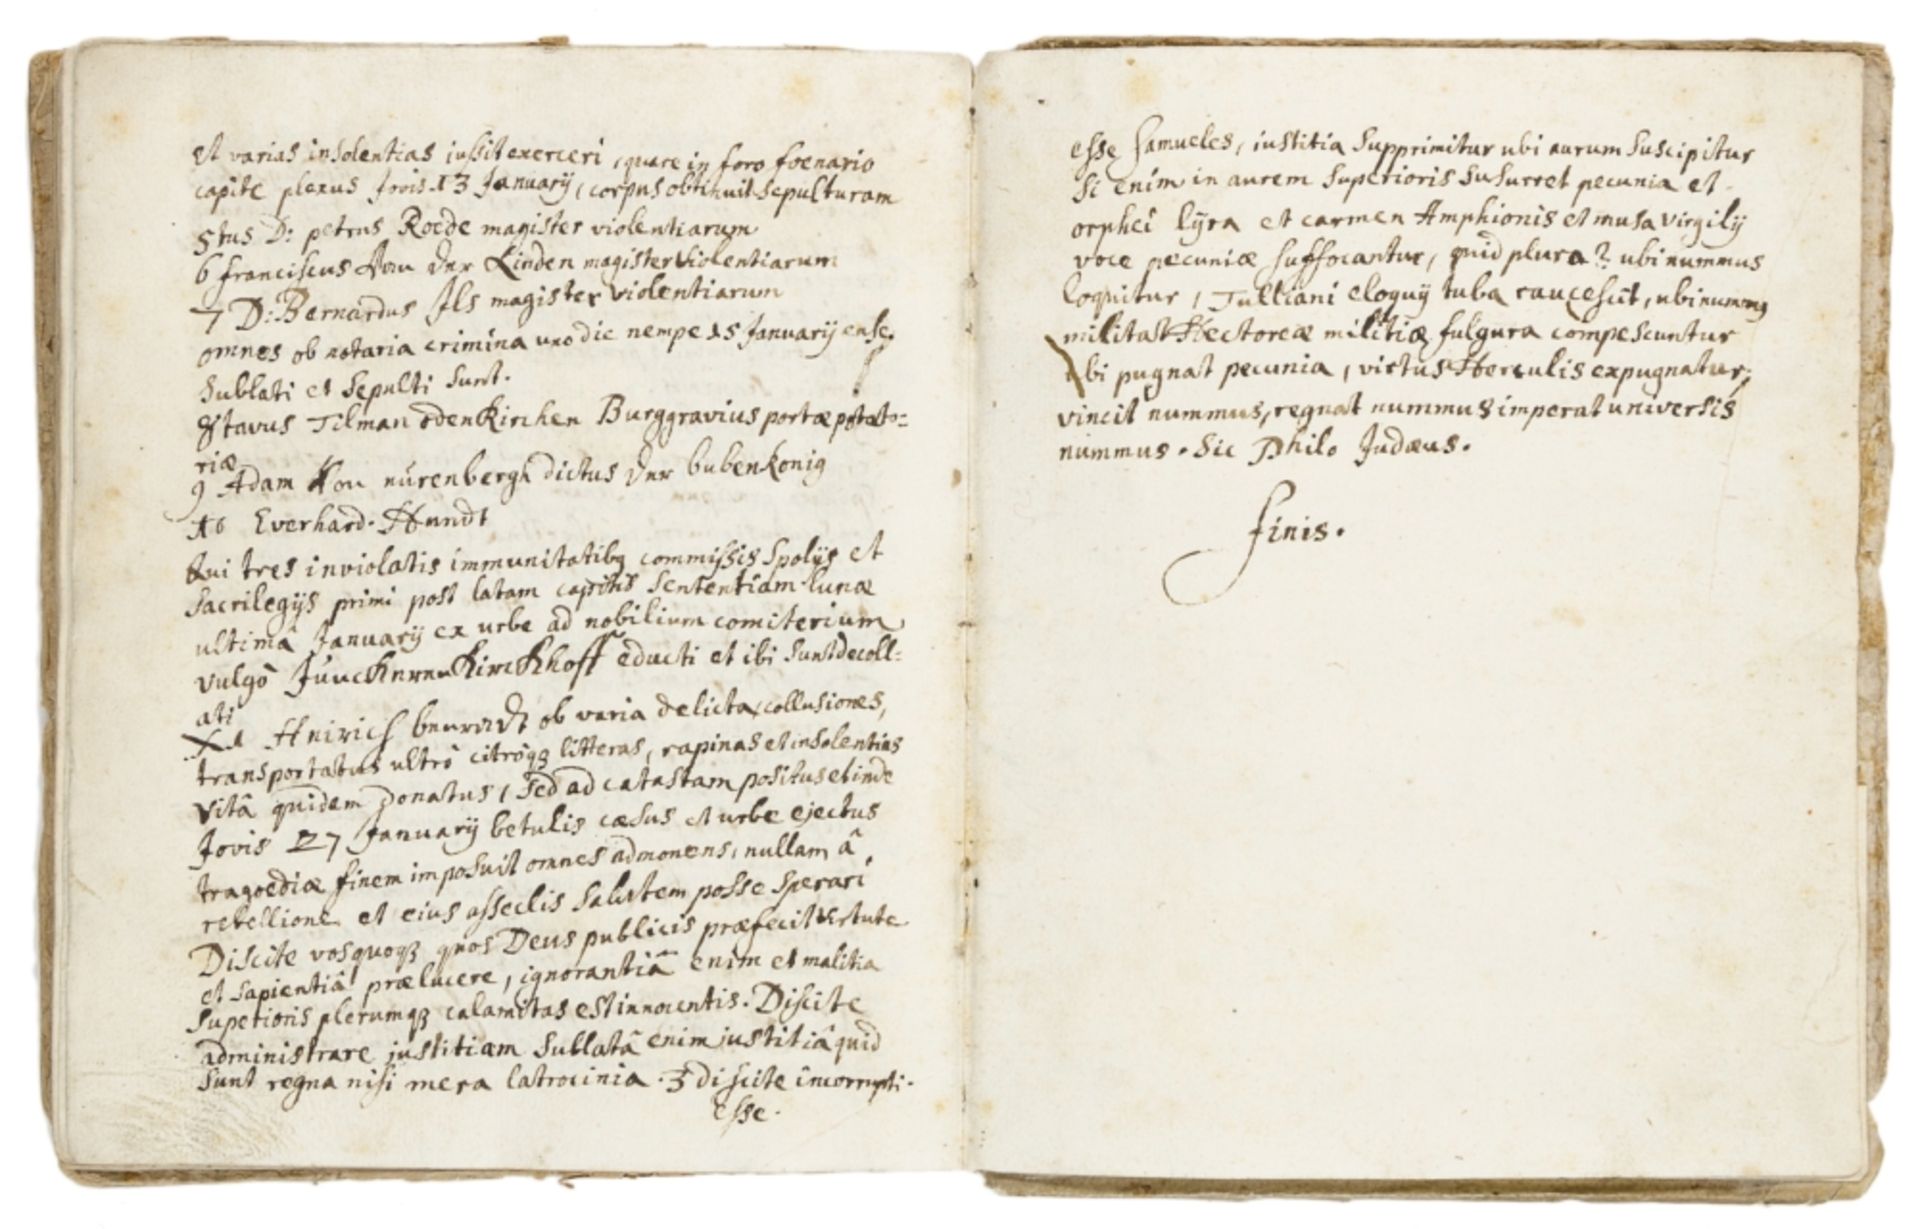 et varias insolentias iussit exerceri, quare in foro foenario
capite plexus Jovis 13 January, corpus obtinuit sepulturam
5tus D: petrus Roede magister violentiarum
6 franciscus Von der Linden magister violentiarum
7 D: Bernardus Jls magister violentiarum
omnes ob notaria crimina uno die nempe 15 Januarij ense
sublati et sepulti sunt.
8tavus Tilman Odenkirchen Burggravius portæ potato=
riæ
9 Adam Von nürenbergh dictus der bubenkonig
10 Everhard. Hundt
Qui tres inviolatis immunitatibq commissis spolijs et
sacrilegijs primi post latam capitis sententiam lunæ
ultimâ Januarij ex urbe ad nobilium comiterium
vulgò Juncker Kirckhoff educti et ibi sunt decoll=
ati
XI Heirich ob varia delicta, collusiones,
transportatas ultrò citròqz litteras, rapinas et insolentias
vitâ quidem donatus, sed ad catastam positus et inde
Jovis 27 Januarij betulis cæsus et urbe ejectus
tragoediæ finem imposuit omnes admonens, nullam â
rebellione et eius asseclis salutem posse sperari
Discite vos quoqz quos Deus publicis præfecit virtute
et sapientiâ prælucere, ignorantiâ enim et malitia
superioris plerumqz calamitas est innocentis. Discite
administrare justitiam sublatâ enim justitiâ quid
sunt regna nisi mera latrocinia. 3 discite incorrupti.
esse.
esse Samueles, iustitia supprimitur ubi aurum suscipitur
si enim in aurem superioris susurret pecunia et
orphei lyra et carmen Amphionis et musa Virgilij
voce pecuniæ suffocantur, quid plura? ubi nummus
loquitur, Tulliani eloquij tuba raucescit, ubi nummq
militat Hectoreæ militiæ fulgura compescuntur
ubi pugnat pecunia, virtus Herculis expugnatur;
vincit nummus, regnat nummus imperat universis
nummus. Sic Philo Judæus.
finis.